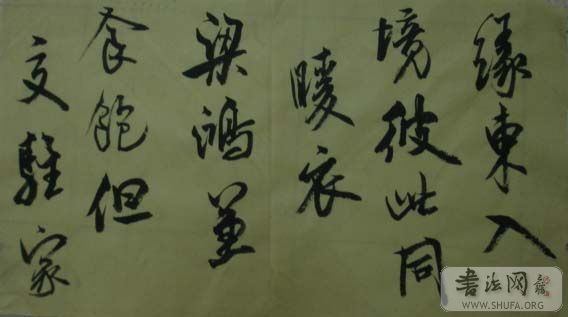 缘東入
境彼此同
暖衣
梁鴻
飽但
家
书法网
WWW.SHUFA.ORG